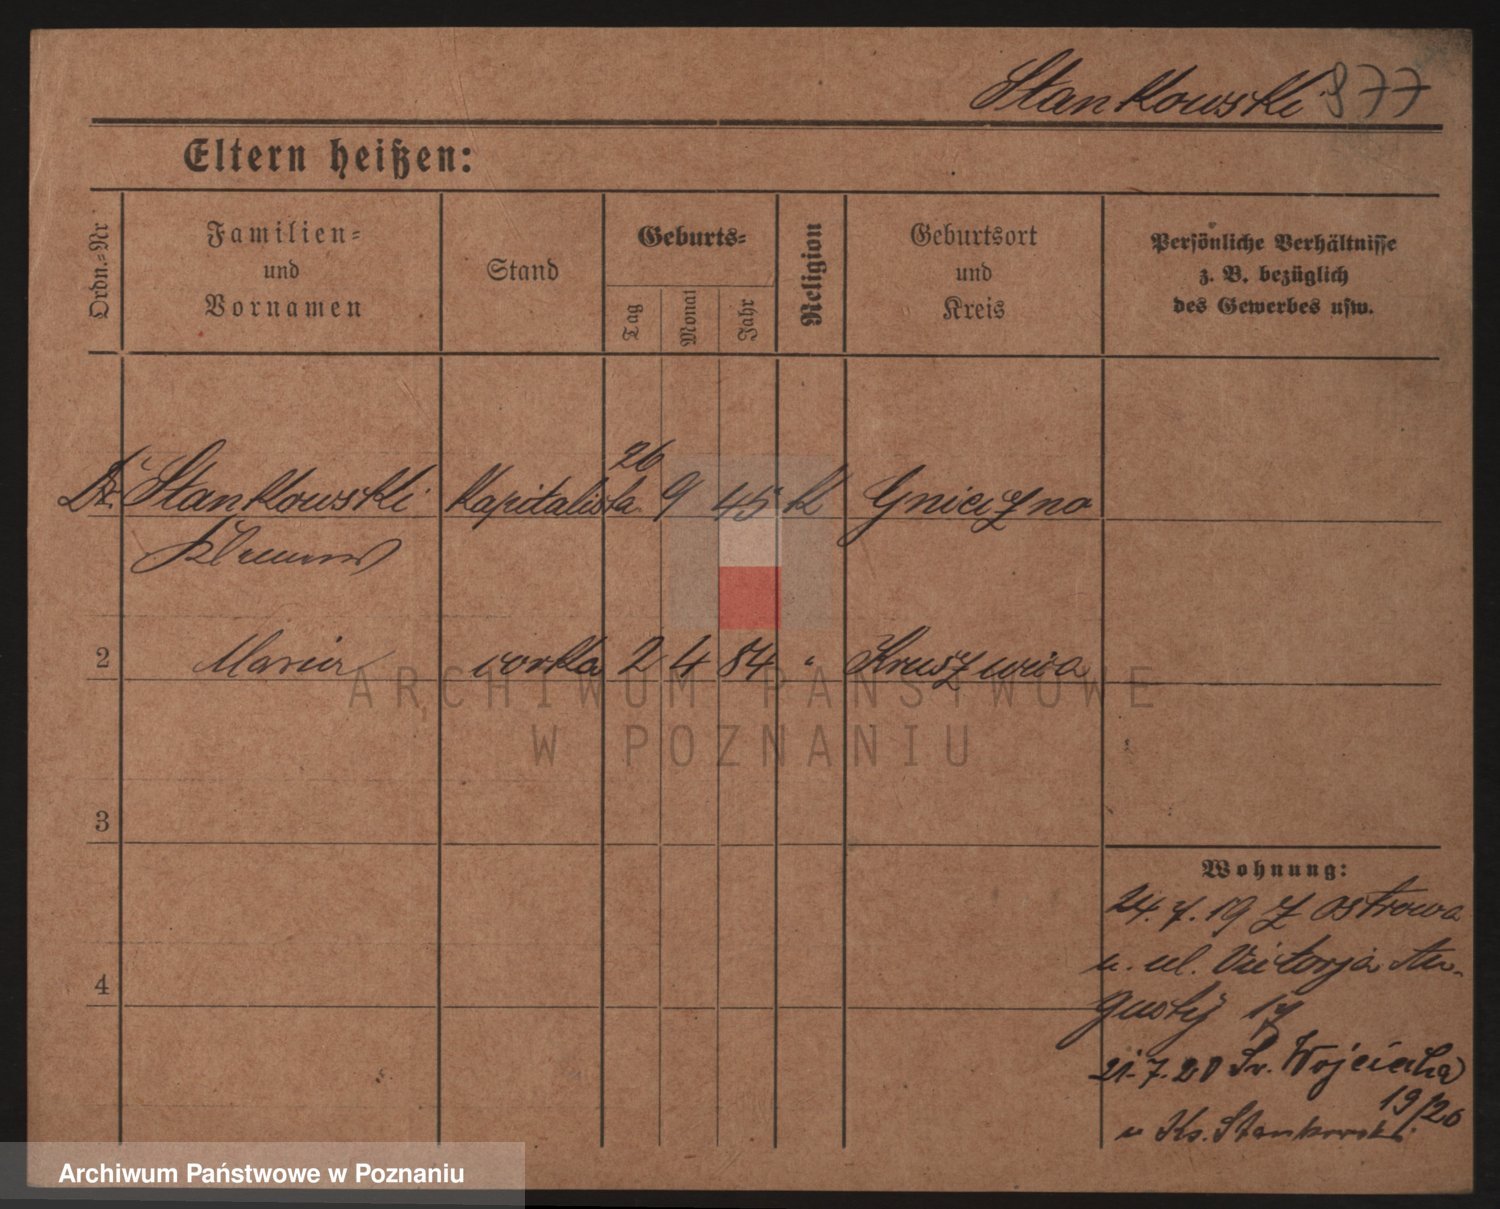 Stankowski 877
Eltern heißen:
Ordn.-Nr
Familien-
und
Vornamen
Stand
Geburts-
Tag
Monat
Jahr
Religion
Geburtsort
und
Kreis
Persönliche Verhältnisse
z. B. bezüglich
des Gewerbes usw.
Dr. Stankowski Kapitalista 26 9 45 k Gniezno
Klemens
2 Maria corka 2 4 84 " Kruszwica
ARCHIWUM PAŃSTWOWE
W POZNANIU
3
4
Wohnung:
24. 7. 19 z Ostrowa
u. ul. Victorja Au-
gusty 17
21.7.20 Św. Wojciecha
19/20
u Ks. Stankowski
Archiwum Państwowe w Poznaniu